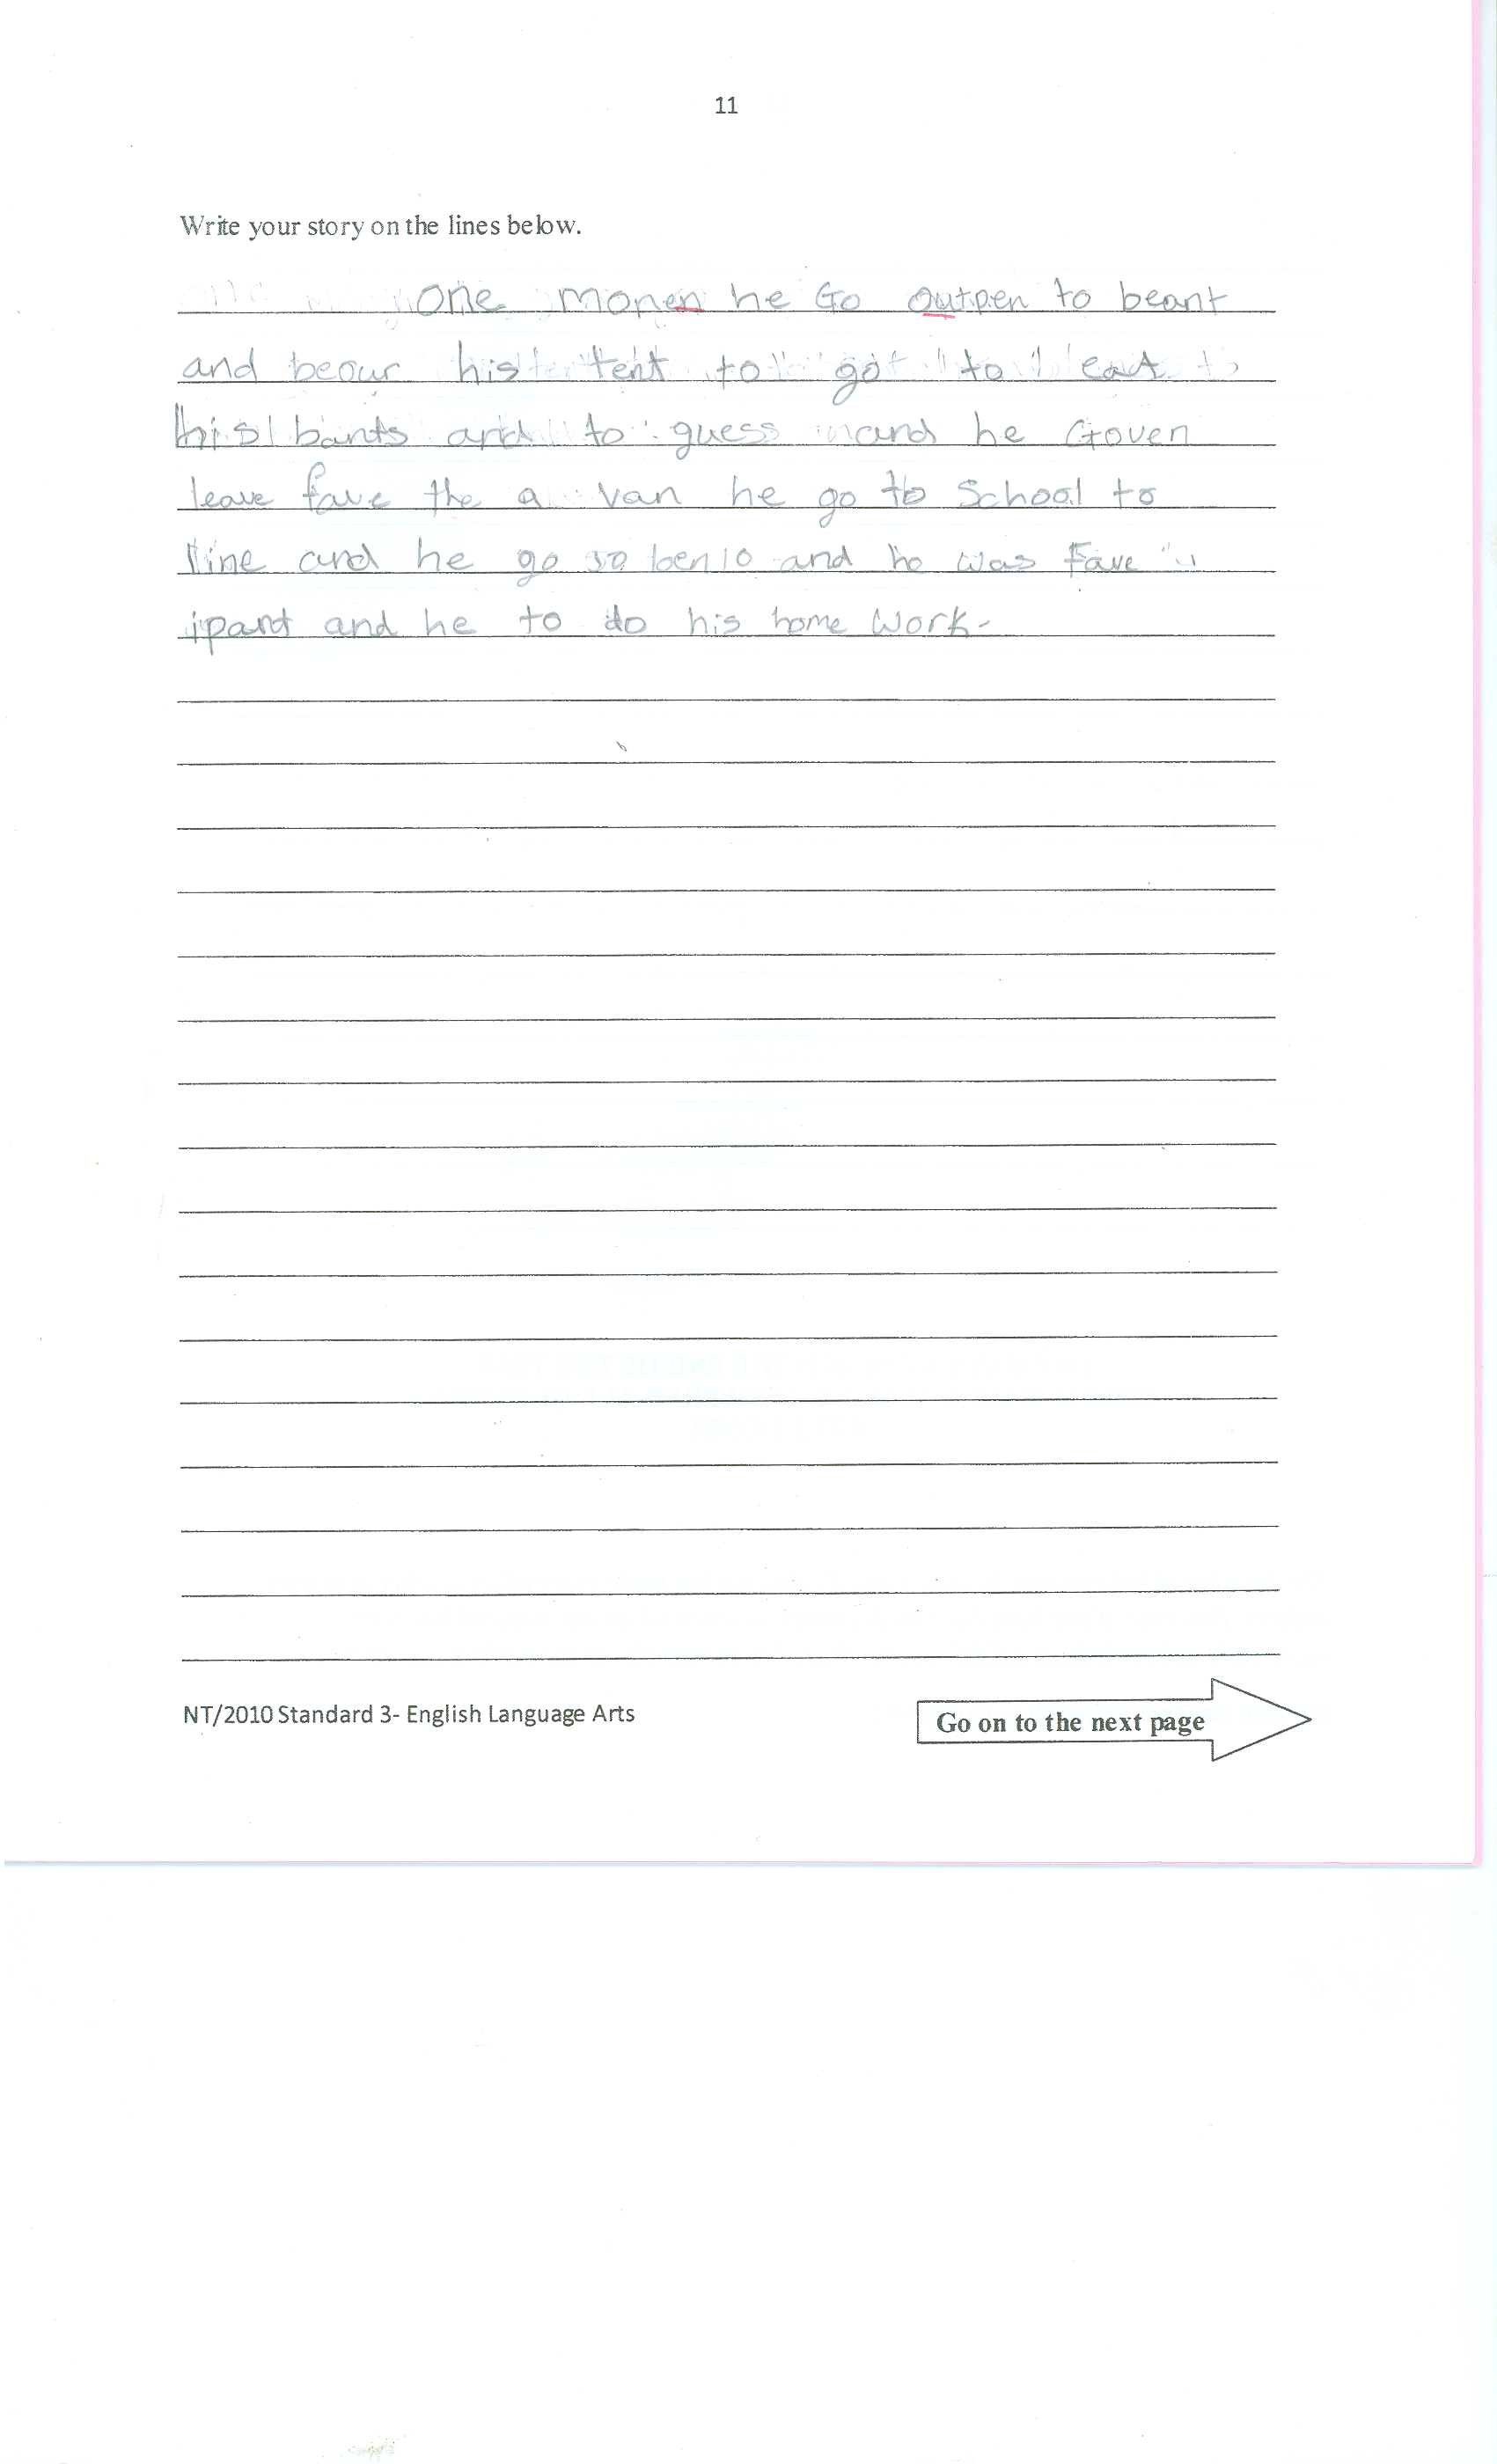 11
Write your story on the lines below.
one monen he Go outpen to beant
and beour his tent to got to eat
his bants and to guess and he Goven
leave fave the a van he go to School to
line and he go so ben10 and he was fave
ipant and he to do his home work-
NT/2010 Standard 3- English Language Arts
Go on to the next page